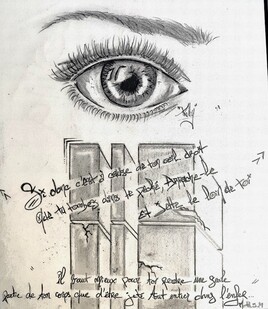 Si donc c'est à cause de ton œil droit
que tu tombes dans le péché, arrache-le
et jette le loin de toi
Il vaut mieux pour toi perdre une seule
partie de ton corps que d'être jeté tout entier dans l'enfer...